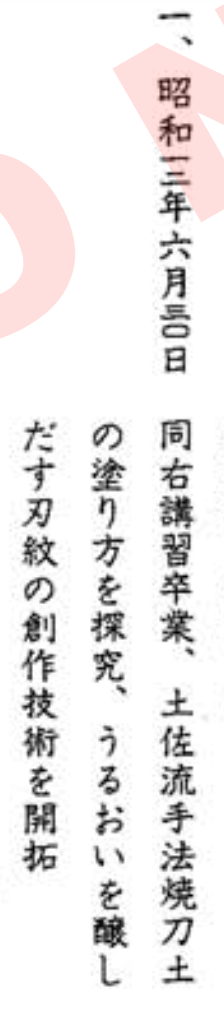 一、昭和一三年六月三〇日 同右講習卒業、土佐流手法焼刀土
の塗り方を探究、うるおいを醸し
だす刃紋の創作技術を開拓